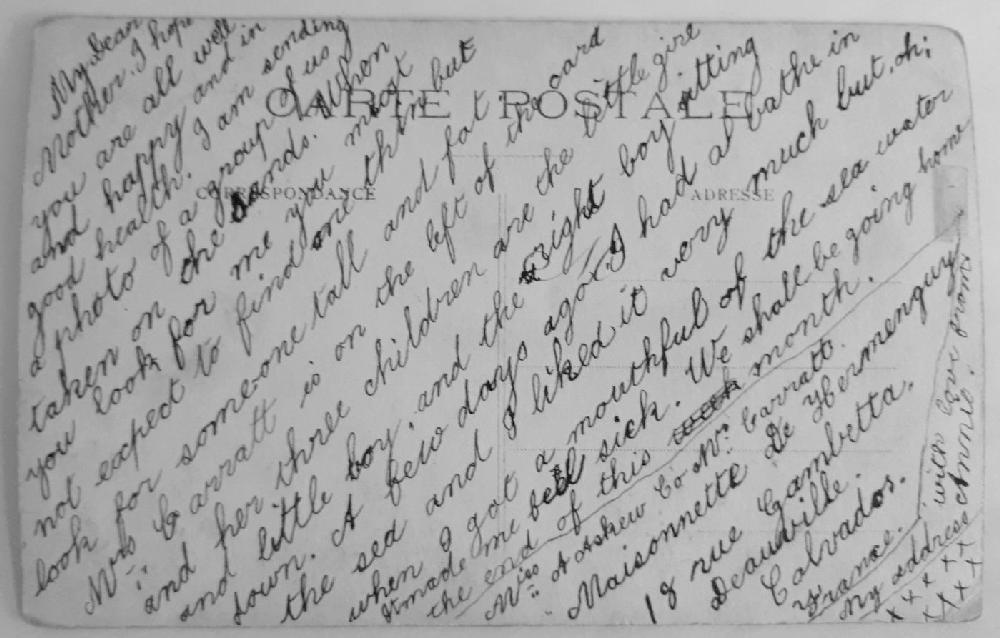 CARTE POSTALE
CORRESPONDANCE
ADRESSE
My Dear
Mother. I hope
you are all well
and happy and in
good health. I am sending
a photo of a group of us
taken on the sands. When
you look for me you must
not expect to find one thin but
look for some-one tall and fat
Mrs Carratt is on the left of the card
and her three children are the little girl
and little boy, and the right boy sitting
down. A few days ago I had a bathe in
the sea and I liked it very much but, oh;
when I got a mouthful of the sea water
it made me feel sick. We shall be going home
the end of this week month.
Miss A Askew Co Mrs Carratt.
Maisonnette De Hermenguy
18 rue Gambetta.
Deauville.
Calvados.
France.
My address
with love from
Annie.
x x x x
x x x x